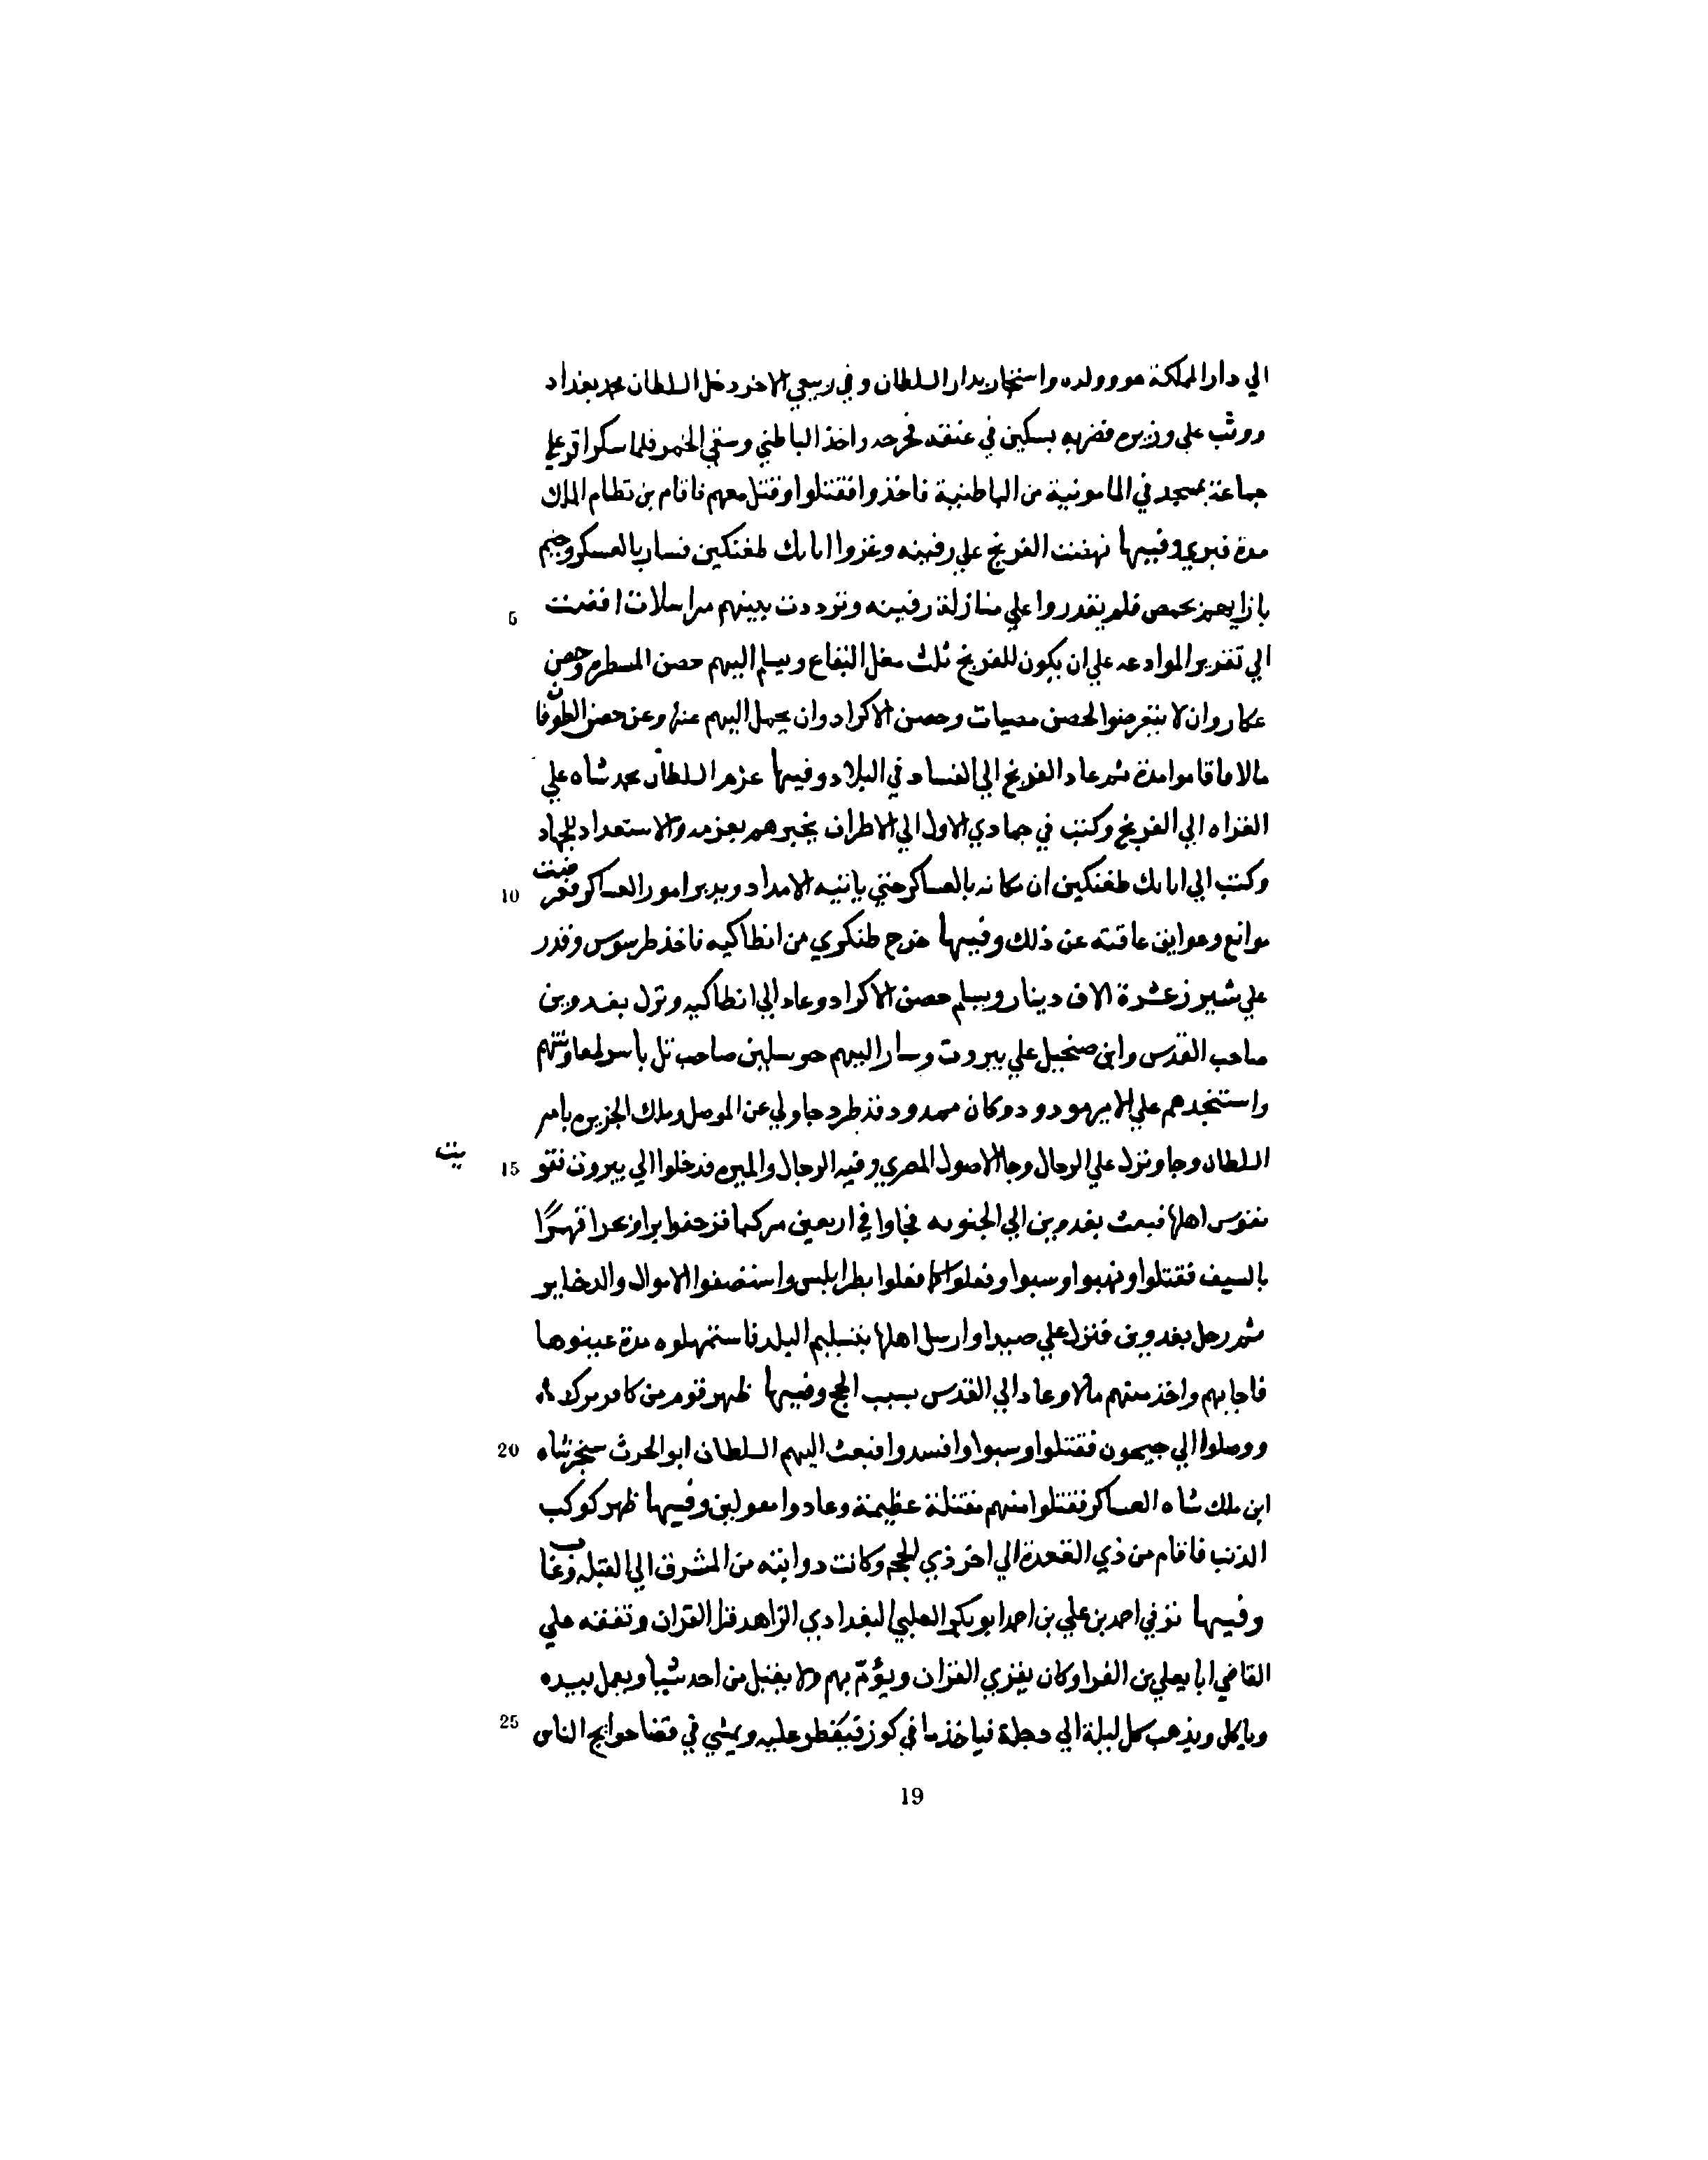 الي دار المملكة هو وولده واستجار بدار السلطان وفي ربيع الاخر دخل السلطان محمد بغداد
ووثب علي وزيره فضربه بسكين في عنقه فجرحه واخذ الباطني وسقي الخمر فلما سكر اقر علي
جماعة بمسجد في المامونية من الباطنية فاخذوا فقتلوا وقتل معهم فاقام بن نظام الملك
مدة فبري وفيها نهضت الفرنج علي رفنيه وغزوا اتابك طغتكين فسار بالعسكر وخيم
بازايهم بحمص فلم يقدروا علي منازلة رفنيه وترددت بينهم مراسلات افضت
الي تقرير الموادعه علي ان يكون للفرنج ثلث مغل البقاع ويسلم اليهم حصن المسطره وحصن
عكار وان لا يتعرضوا لحصن مصيات وحصن الاكراد وان يحمل اليهم عنها وعن حصن الطوفان
مالا فاقاموا مدة ثم عاد الفرنج الي الفساد في البلاد وفيها عزم السلطان محمد شاه علي
الغزاه الي الفرنج وكتب في جمادي الاول الي الاطراف يخبرهم بعزمه والاستعداد للجهاد
وكتب الي اتابك طغتكين ان مكانه بالعساكر حتي ياتيه الامداد ويدبر امور العساكر فعرضت
موانع وعوايق عاقته عن ذلك وفيها خرج طنكري من انطاكيه فاخذ طرسوس وقرر
علي شيزر عشرة الاف دينار ويسلم حصن الاكراد وعاد الي انطاكيه ونزل بغدوين
صاحب القدس وابن صنجيل علي بيروت وسار اليهم جوسلين صاحب تل باسر لمعاونتهم
واستنجدهم علي الامير مودود وكان ممدود قد طرد جاولي عن الموصل وملك الجزيره بامر
السلطان وجا ونزل علي الرحال وجا الاصول المصري وفيه الرجال والميره فدخلوا الي بيروت فتقو يت
نفوس اهلها فبعث بغدوين الي الجنويه فجاوا في اربعين مركبا فزحفوا برا وبحرا قهرًا
بالسيف فقتلوا ونهبوا وسبوا وفعلوا كما فعلوا بطرابلس واستصفوا الاموال والدخاير
ثم رحل بغدوين فنزل علي صيدا وارسل اهلها بتسليم البلد فاستمهلوه مدة عينوها
فاجابهم واخذ منهم مالا وعاد الي القدس بسبب الحج وفيها ظهر قوم من كافر
ووصلوا الي جيحون فقتلوا وسبوا وافسدوا فبعث اليهم السلطان ابو الحرث سنجر شاه
ابن ملك شاه العساكر فقتلوا منهم مقتلة عظيمة وعادوا وفيها ظهر كوكب
الذنب فاقام من ذي القعدة الي اخر ذي الحجه وكانت دوابته من المشرق الي القبله وغاب
وفيها توفي احمد بن علي بن احمد ابو بكر العلبي البغدادي الزاهد قرا القران وتفقه علي
القاضي ابا يعلي بن الفرا وكان يقري القران ويؤمّ بهم ولا يقبل من احد شيا ويعمل بيده
وياكل ويذهب كل ليلة الي دجلة فياخذ ما في كوز فيفطر عليه ويمشي في قضا حوايج الناس
5
10
15
20
25
19